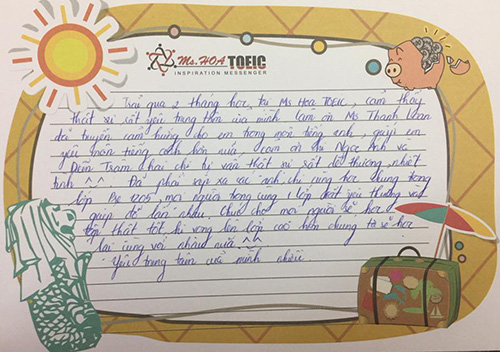 Ms. HOA TOEIC
INSPIRATION MESSENGER
Trải qua 2 tháng học tại Ms Hoa TOEIC, cảm thấy
thật sự rất yêu trung tâm của mình. Cảm ơn Ms Thanh Loan
đã truyền cảm hứng cho em trong môn tiếng anh, giúp em
yêu môn tiếng anh hơn nữa. Cảm ơn chị Ngọc Anh và
Diễm Trâm, hai chị tư vấn thật sự rất dễ thương, nhiệt
tình ^^. Đã phải sắp xa các anh chị cùng học chung trong
lớp Pre 1205, mọi người trong cùng 1 lớp đều yêu thương và
giúp đỡ lẫn nhau. Chúc cho mọi người sẽ học
tập thật tốt, hi vọng lên lớp cao hơn chúng ta sẽ học
lại cùng với nhau nữa ^^
Yêu trung tâm mình nhiều.